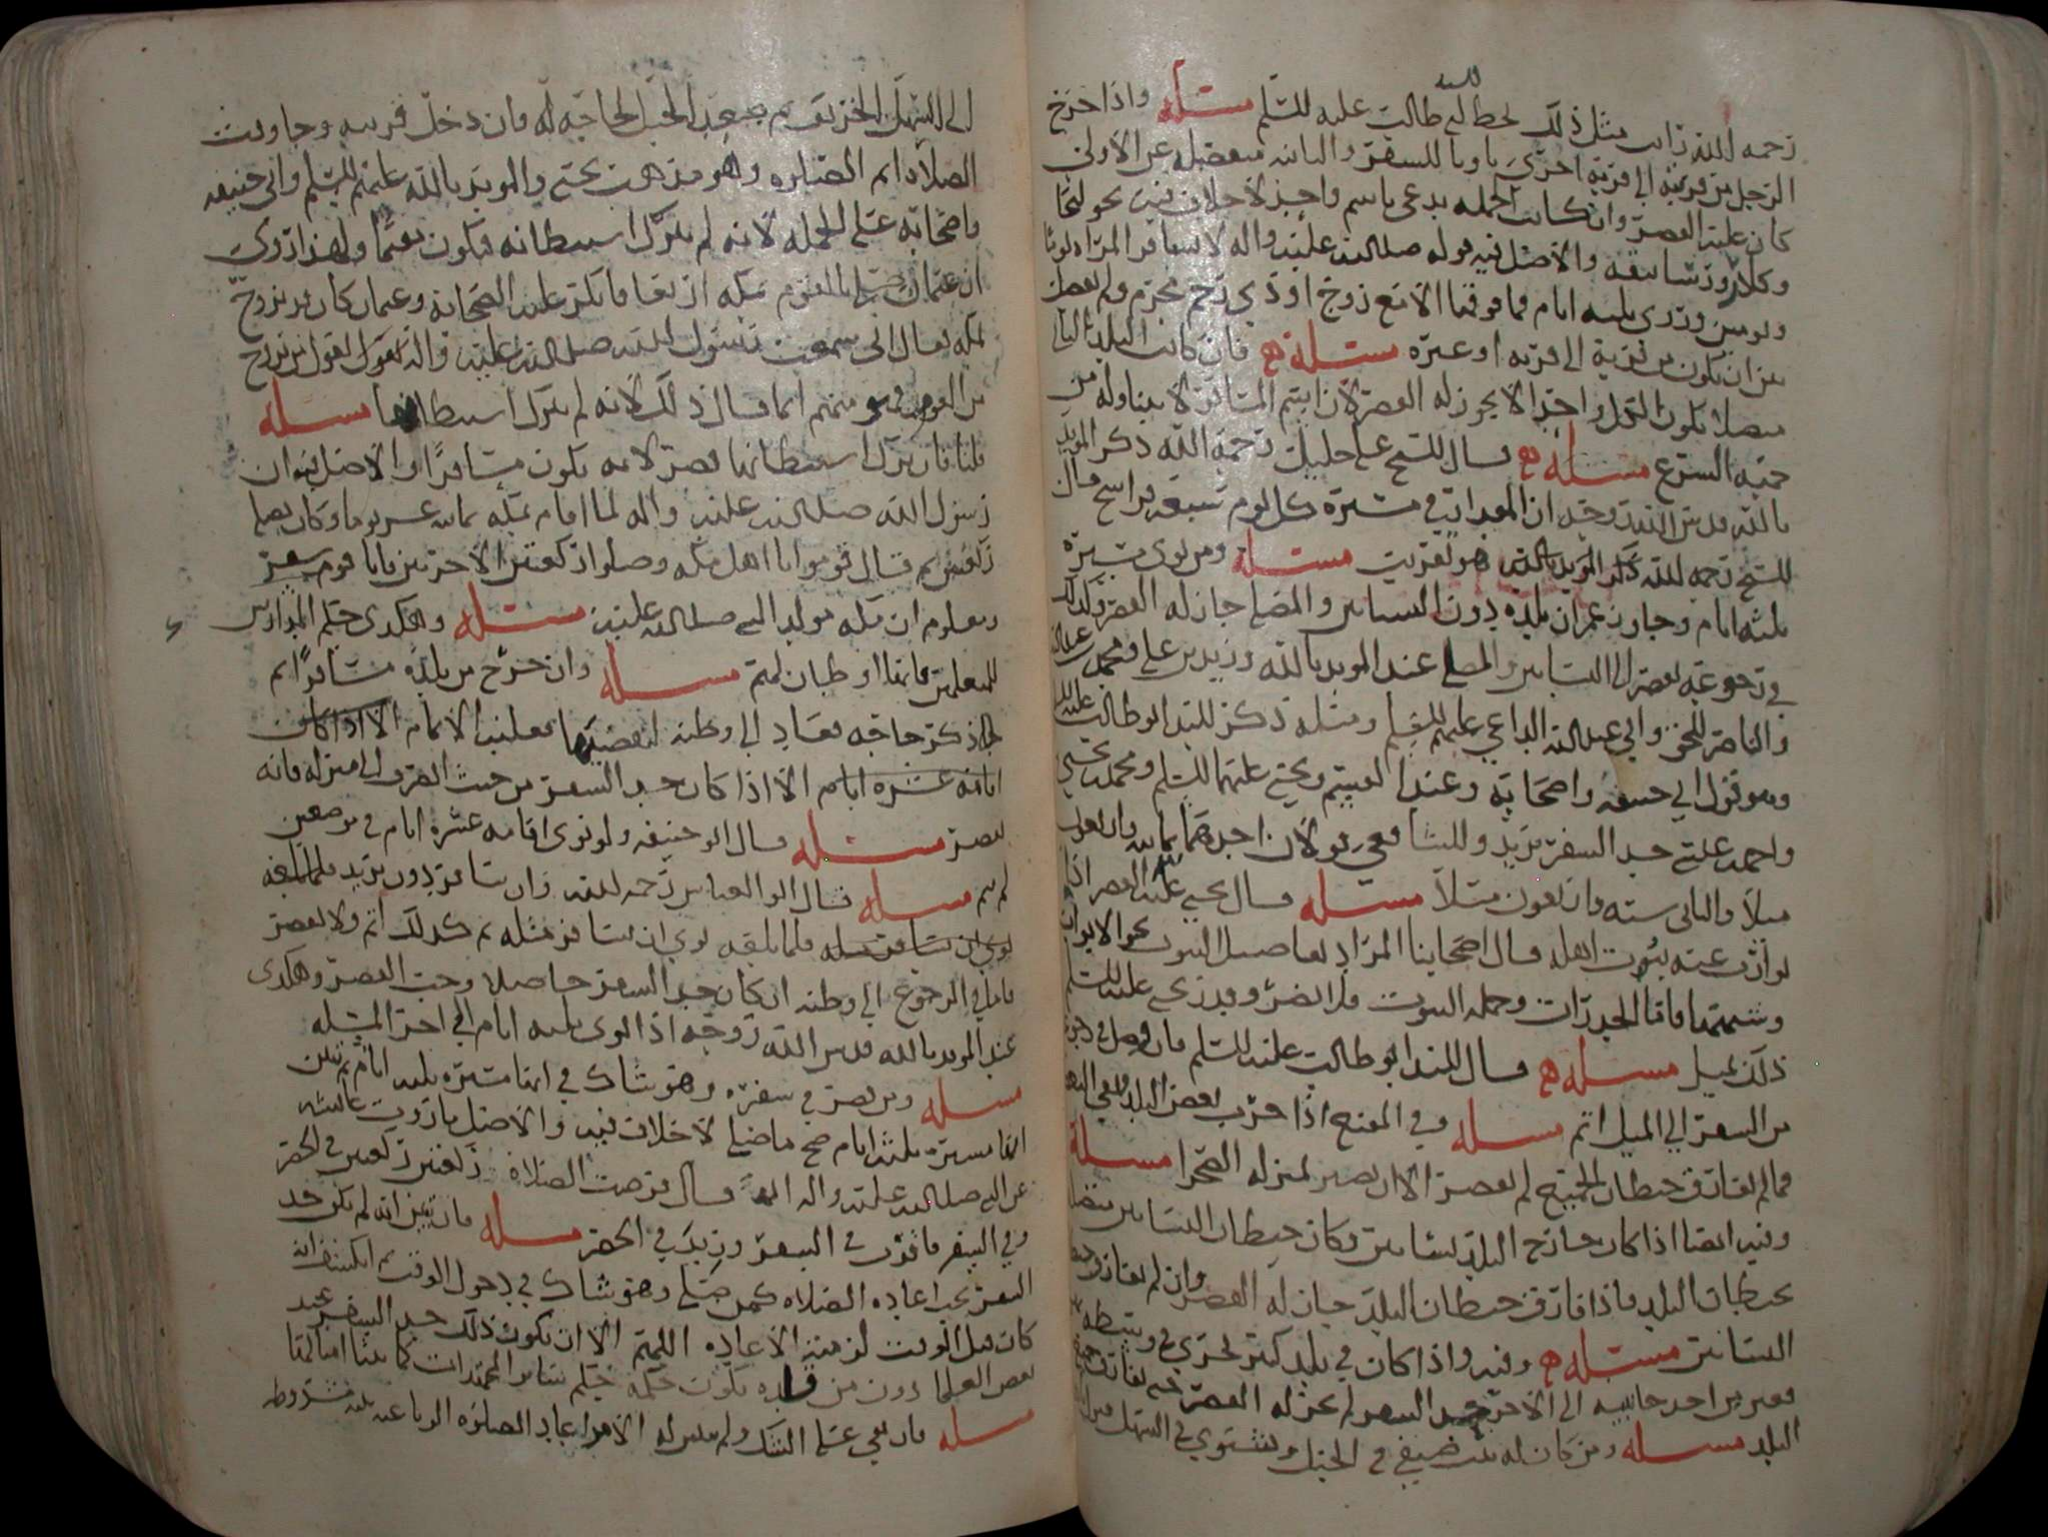 رحمه الله رأيت مثل ذلك بخط السيد أبي طالب عليه السلم مسئله واذا خرج
الرجل من قريته الى قرية اخرى ناويا للسفر والثانيه منفصله عن الأولى
كان عليه القصر وان كانت الجمله يدعى باسم واحد لا خلاف فيه نحو
وكلار والاصل فيه قوله صلى الله عليه واله لا تسافر المراه يوما
ويومين وروى ثلثه ايام فما فوقها الا مع زوج او ذي رحم محرم ولم يفصل
بين ان يكون من قرية الى قريه او غيره مسئلة فان كانت البلد
متصلا يكون الكل واحدا لا يجوز له القصر لان اسم المسافر لا يتناوله من
جهة الشرع مسئله قال الشيخ علي خليل رحمه الله ذكر المويد
بالله قدس الله روحه ان المعتاد في مسيرة كل يوم سبعة فراسخ قال
الشيخ رحمه الله ذكر المويد بالله هو تقريب مسئلة ومن نوى مسيرة
ثلثه ايام وجاوز عمران بلده دون البساتين والمصلى جاز له القصر وكذلك
في رجوعه يقصر الى البساتين والمصلى عند المويد بالله وزيد بن علي ومحمد
والناصر للحق وابي عبدالله الداعي عليهم السلم ومثله ذكر السيد ابو طالب عليه
وهو قول ابي حنيفه واصحابه وعند القسم ويحيى عليهما السلم ومحمد بن يحيى
واحمد علي حد السفر بريد وللشافعي قولان احدهما ثمانيه واربعون
ميلا والثاني سته واربعون ميلا مسئله قال يحيى عليه القصر اذا
توارت عنه بيوت اهله قال اصحابنا المراد تفاصيل البيوت نحو الابواب
وشبهها فاما الجدرات وجمله البيوت فلا تضر وقدر يحيى عليه السلم
ذلك بميل مسئله قال السيد ابو طالب عليه السلم فان وصل في رجوعه
من السفر الى الميل اتم مسئله وفي المقنع اذا خرب بعض البلد وبقي
فما لم يفارق حيطان الجميع لم يقصر الا ان يصير بمنزله الصحرا مسئلة
وفيه ايضا اذا كان خارج البلد بساتين وكان حيطان البساتين متصلا
بحيطان البلد فاذا فارق حيطان البلد جاز له القصر وان لم يفارق
البساتين مسئله وفيه واذا كان في بلد كبير يجري في وسطه
فعبر من احد جانبيه الى الاخر السفر لم يجز له القصر حتى يفارق
البلد مسئله ومن كان له بيت صيفي في الجبل وشتوي في السهل
الى السهل للخريف ثم يصعد الجبل لحاجة له فان دخل قريبه وجاوبت
الصلاه اتم الصلوه وهو مذهب يحيى والمويد بالله عليهم السلم وابي حنيفه
واصحابه على الجمله لانه لم يترك استيطانه فيكون مقيما ولهذا روى
ان عثمان صلى بالقوم بمكه اربعا فانكر عليه الصحابة وعثمان كان قد تزوج
بمكه فقال اني سمعت رسول الله صلى الله عليه واله يقول من تزوج
من القوم فهو منهم انما قال ذلك لانه لم يترك استيطانها مسئله
قلنا فان ترك استيطانها قصر لانه يكون مسافرا والاصل فيه ان
رسول الله صلى الله عليه واله لما اقام بمكه ثمانيه عشر يوما وكان يصلي
ركعتين ثم قال قوموا يا اهل مكه وصلوا ركعتين الاخريين فانا قوم سفر
ومعلوم ان مكه مولد النبي صلى الله عليه مسئله وهكذى حكم المدارس
للمتعلمين فانها اوطان لهم مسئله وان خرج من بلده مسافرا ثم
ذكر حاجه فعاد الى وطنه لتقضيها فعليه الاتمام الا اذا كان
اقامه عشره ايام الا اذا كان حد السفر من حيث انصرف الى منزله فانه
يقصر مسئله قال ابو حنيفه ولو نوى اقامه عشره ايام في موضعين
لم يتم مسئله قال ابو العباس رحمه الله وان سافر دون بريد فلما بلغه
نوى ان يسافر مثله فلما بلغه نوى ان يسافر مثله ثم كذلك اتم ولا يقصر
فاما في الرجوع الى وطنه ان كان حد السفر حاصلا وجب القصر وهكذى
عند المويد بالله قدس الله روحه اذا نوى ثلثه ايام الى اخر المسئله
مسئله ومن قصر في سفره وهو شاك في انها مسيره ثلثه ايام ثم تبين
انها مسيره ثلثه ايام صح ما صلى لا خلاف فيه والاصل ما روت عائشه
عن النبي صلى الله عليه واله انه قال فرضت الصلاة ركعتين ركعتين في الحضر
وفي السفر فاقرت في السفر وزيد في الحضر مسئله فان تبين انه لم يكن حد
السفر يجب اعاده الصلاه كمن صلى وهو شاك في دخول الوقت ثم انكشف انه
كان قبل الوقت لزمته الاعاده اللهم الا ان يكون ذلك حد السفر عند
بعض العلما دون من قلده يكون حكمه حكم سائر المجتهدات كما بينا امثالها
مسئله فان بقي على الشك ولم يتبين له الامر اعاد الصلوه الرباعيه